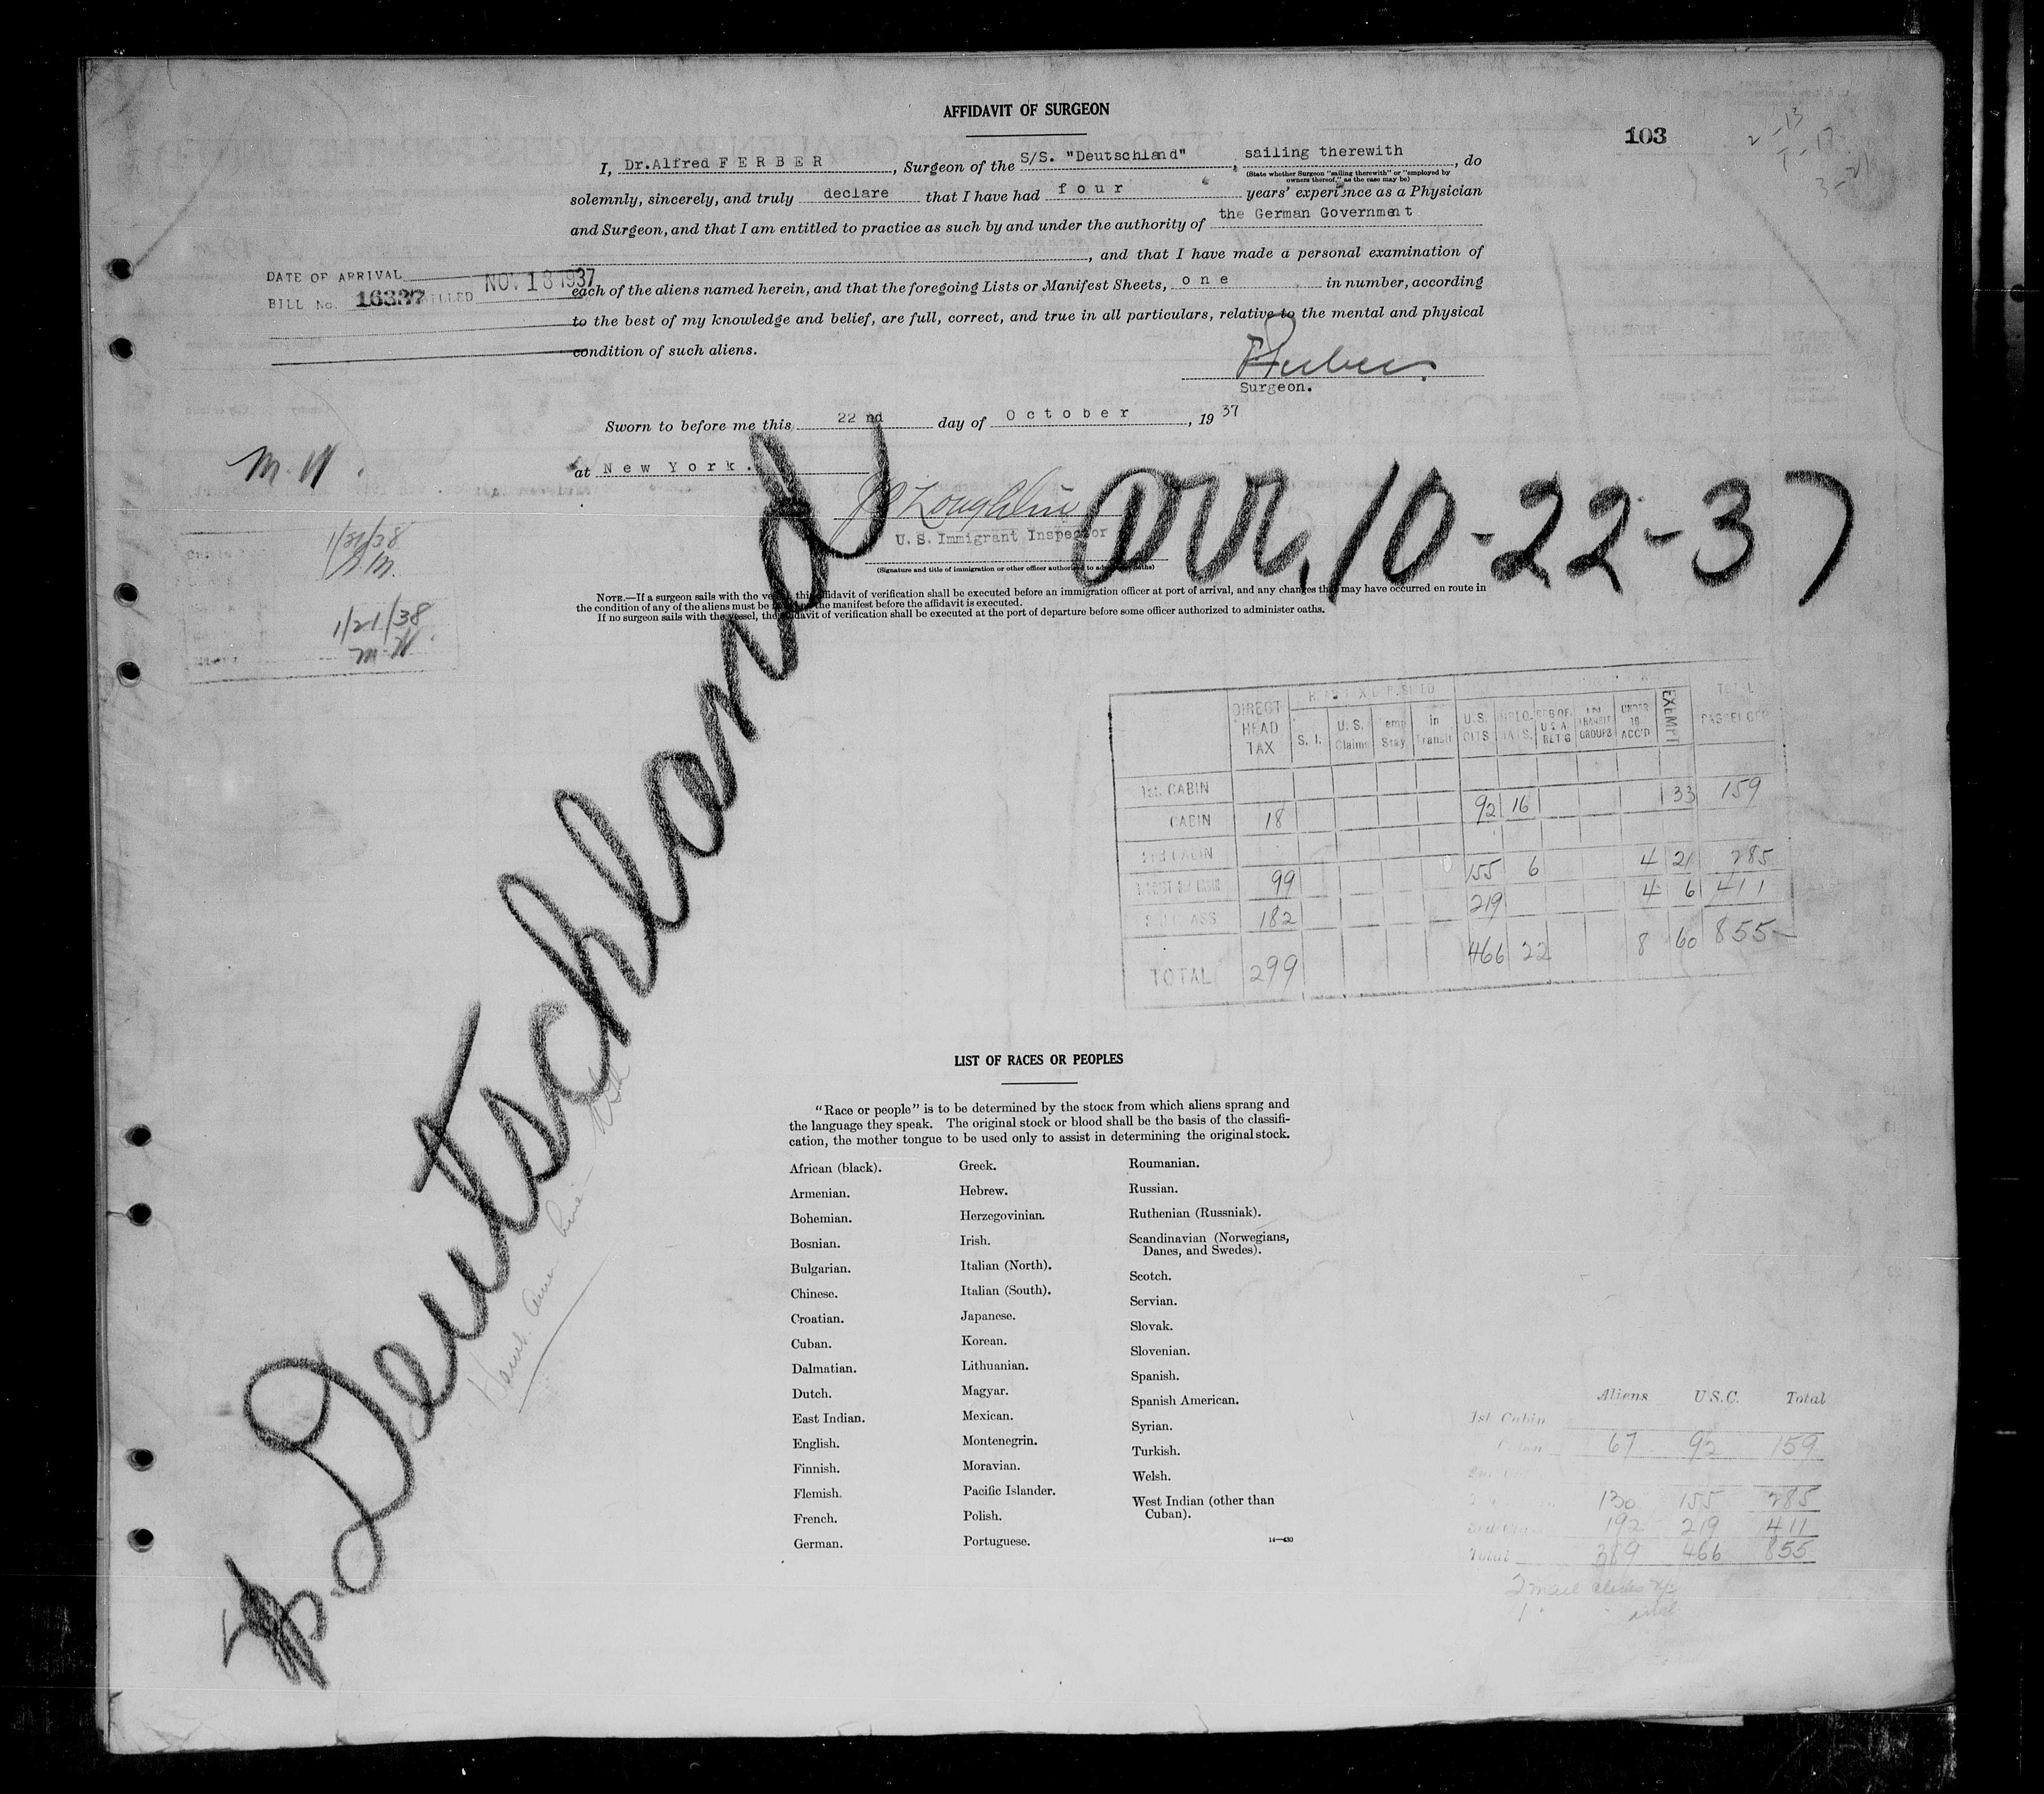 AFFIDAVIT OF SURGEON
103
I, Dr.Alfred F E R B E R, Surgeon of the S/S. "Deutschland", sailing therewith, do
(State whether Surgeon "sailing therewith" or "employed by
owners thereof," as the case may be)
solemnly, sincerely, and truly declare that I have had f o u r years' experience as a Physician
and Surgeon, and that I am entitled to practice as such by and under the authority of the German Government
, and that I have made a personal examination of
DATE OF ARRIVAL
NOV 18 1937
BILL No. 16337 BILLED
each of the aliens named herein, and that the foregoing Lists or Manifest Sheets, o n e in number, according
to the best of my knowledge and belief, are full, correct, and true in all particulars, relative to the mental and physical
condition of such aliens.
Ferber.
Surgeon.
Sworn to before me this 22 nd day of O c t o b e r, 19 37
at N e w Y o r k .
M. W.
U. S. Immigrant Inspector
(Signature and title of immigration or other officer authorized to administer oaths)
Arr. 10-22-37
1/21/38
1/21/38
M. W.
NOTE.—If a surgeon sails with the vessel, this affidavit of verification shall be executed before an immigration officer at port of arrival, and any changes that may have occurred en route in
the condition of any of the aliens must be noted on the manifest before the affidavit is executed.
If no surgeon sails with the vessel, the affidavit of verification shall be executed at the port of departure before some officer authorized to administer oaths.
Deutschland
DIRECT HEAD TAX S. I. U. S. Claims Temp Stay in Transit U.S. CITS DIPLO. MATS. UNDER 16 ACC'D EXEMPT TOTAL PASSENGER
1st. CABIN
CABIN 18 92 16 33 159
2nd CABIN
99 155 6 4 21 285
3rd CLASS 182 219 4 6 411
TOTAL 299 466 22 8 60 855
LIST OF RACES OR PEOPLES
"Race or people" is to be determined by the stock from which aliens sprang and
the language they speak. The original stock or blood shall be the basis of the classifi-
cation, the mother tongue to be used only to assist in determining the original stock.
African (black).
Armenian.
Bohemian.
Bosnian.
Bulgarian.
Chinese.
Croatian.
Cuban.
Dalmatian.
Dutch.
East Indian.
English.
Finnish.
Flemish.
French.
German.
Greek.
Hebrew.
Herzegovinian.
Irish.
Italian (North).
Italian (South).
Japanese.
Korean.
Lithuanian.
Magyar.
Mexican.
Montenegrin.
Moravian.
Pacific Islander.
Polish.
Portuguese.
Roumanian.
Russian.
Ruthenian (Russniak).
Scandinavian (Norwegians,
Danes, and Swedes).
Scotch.
Servian.
Slovak.
Slovenian.
Spanish.
Spanish American.
Syrian.
Turkish.
Welsh.
West Indian (other than
Cuban).
14—430
Aliens U.S.C. Total
1st Cabin
Cabin 67 92 159
130 155 285
3rd Class 192 219 411
Total 389 466 855